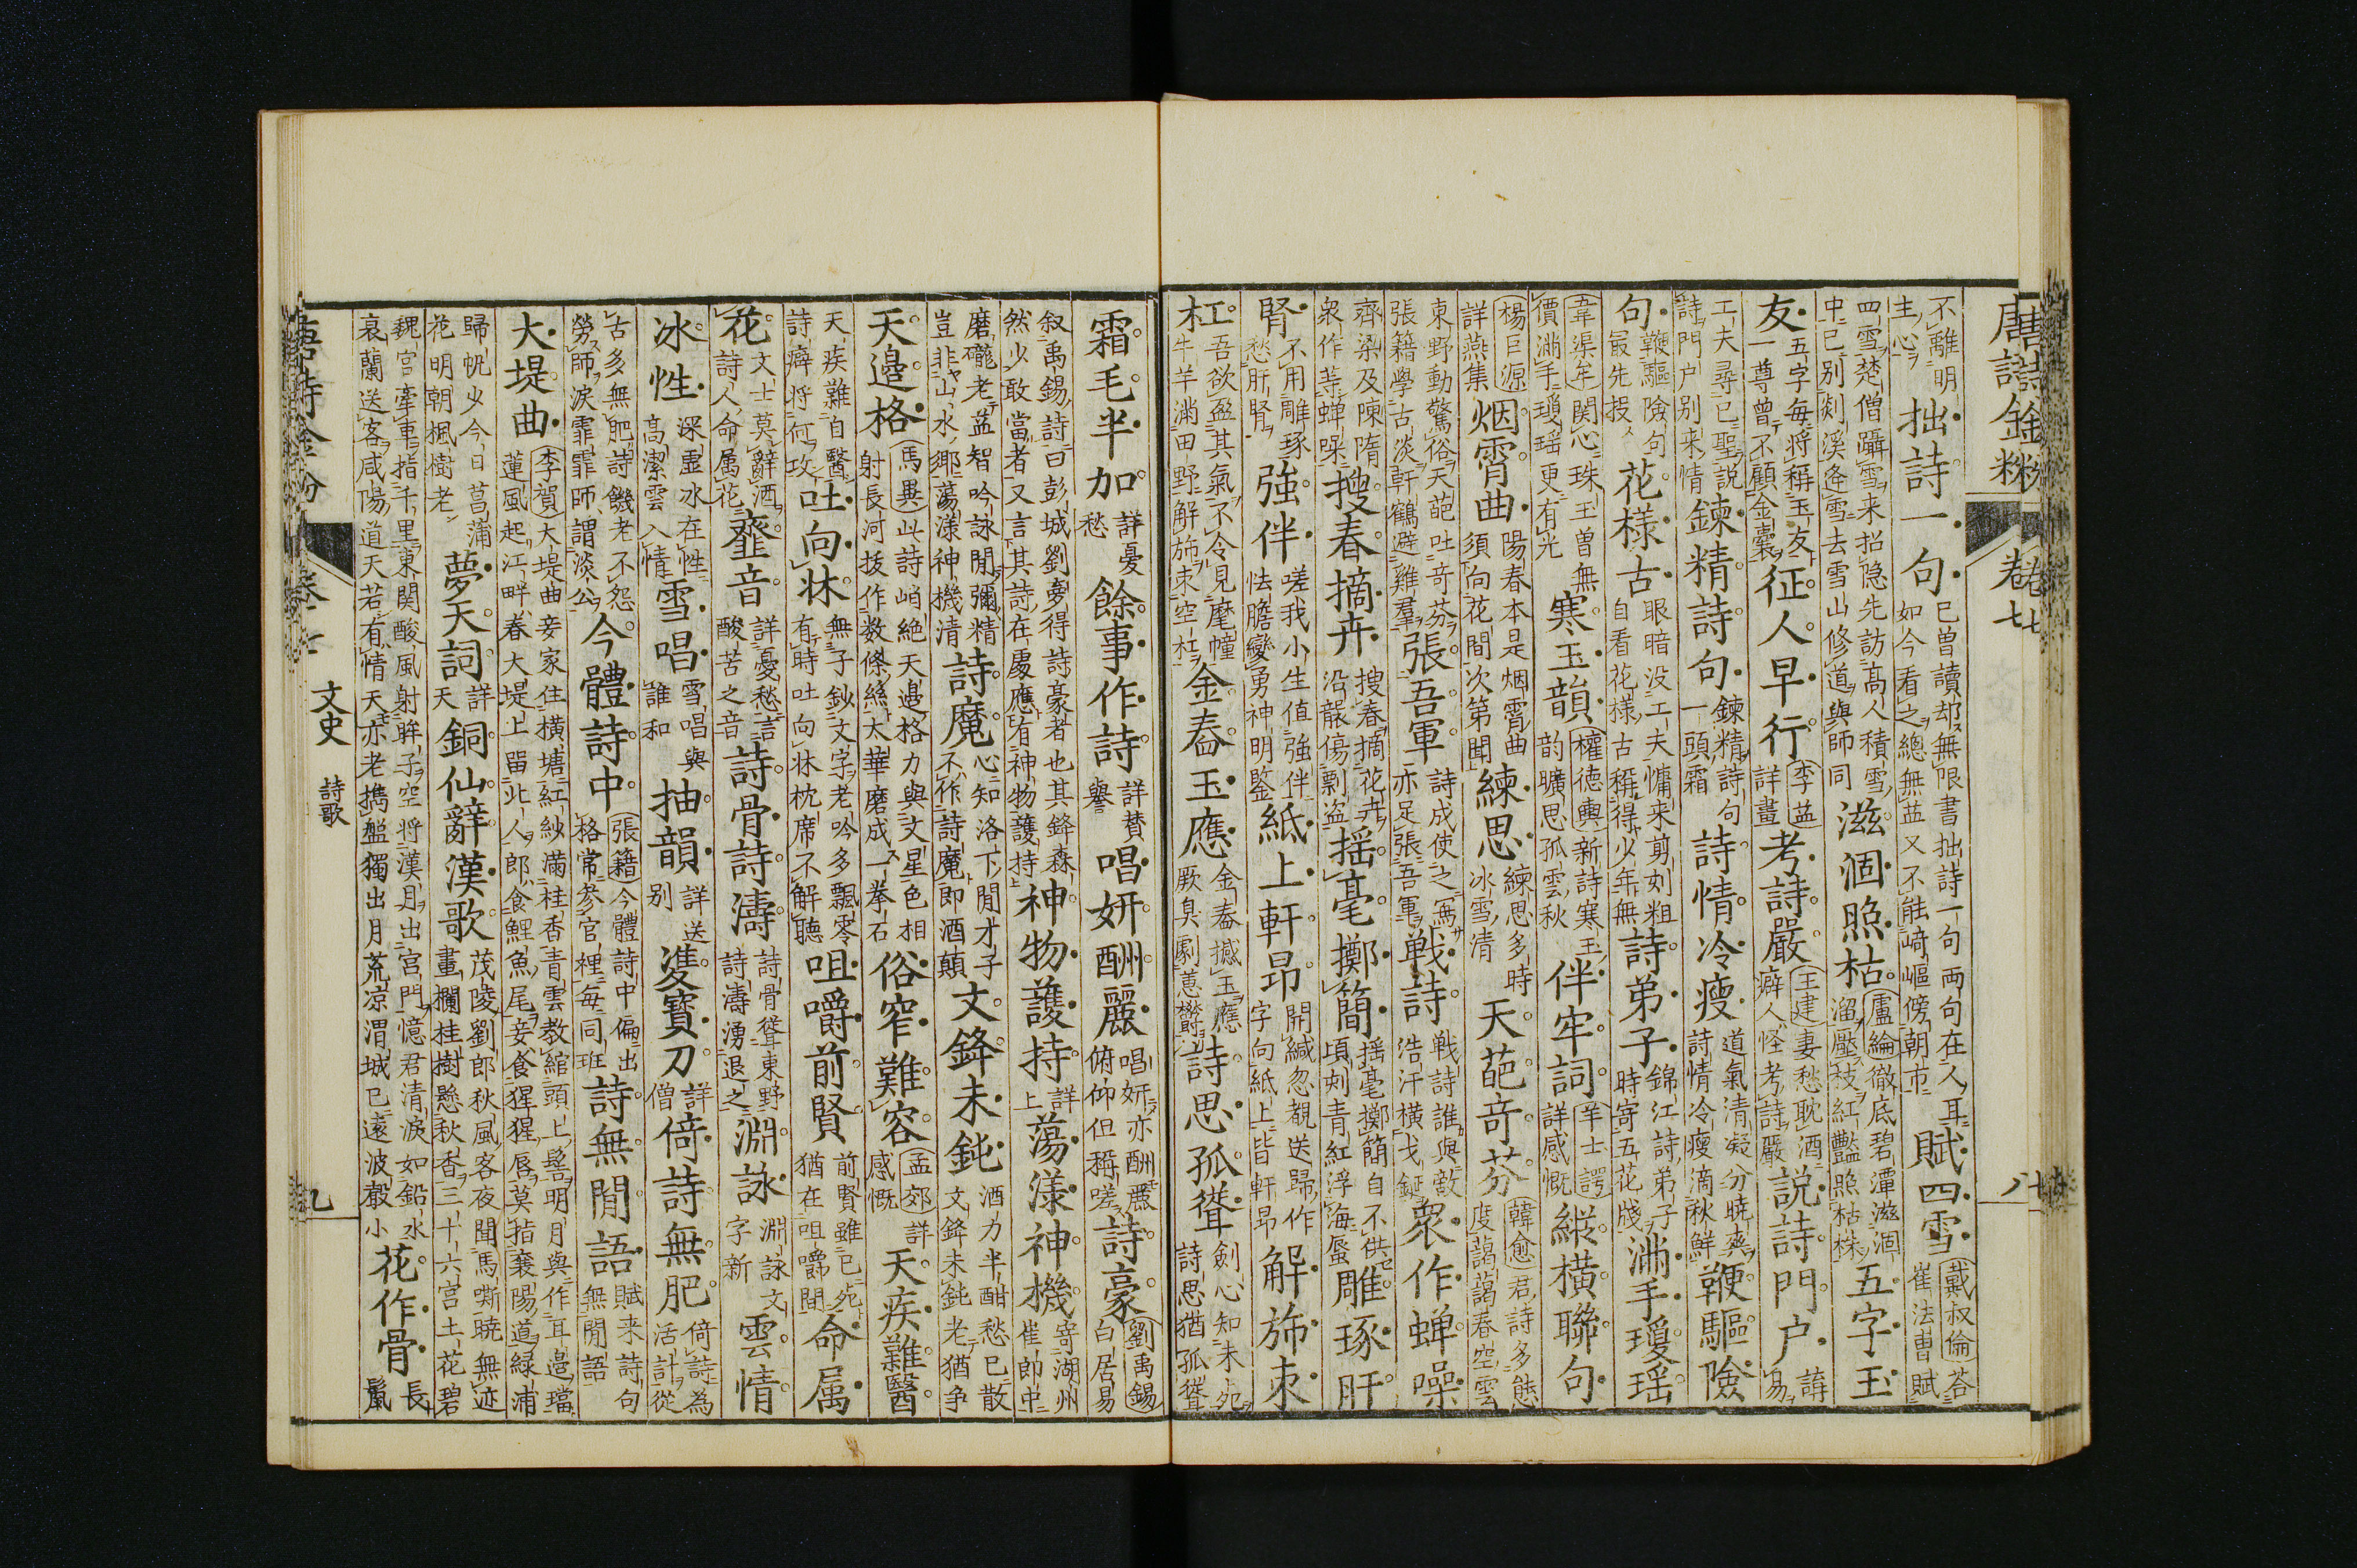 唐詩金粉 卷七 八
不離明主心 拙詩一句 已曾讀却無限書拙詩一句兩句在人耳如今看之總無益又不能﨑嶇傍朝市 賦四雪 戴叔倫荅崔法曹賦
四雪楚僧躡雪来招隐先訪髙人積雪中已別剡溪逢雪去雪山修道與師同 滋涸照枯 盧綸徹底碧潭滋涸溜壓枝紅豔照枯株 五字玉
友 五字毎将稱玉友一尊曾不顧金嚢 征人早行 李益詳畫 考詩嚴 王建妻愁耽酒癖人怪考詩嚴 説詩門户 請易
工夫尋已聖説詩門户别来情 鍊精詩句 鍊精詩句一頭霜 詩情冷瘦 道氣清凝分暁爽詩情冷瘦滴秋鮮 鞭驅險
句 鞭驅險句最先投 花様古 眼暗没工夫慵来剪刻粗自看花様古稱得少年無 詩弟子 錦江詩弟子時寄五花牋 滿手瓊瑶
韋渠牟関心珠玉曾無價滿手瓊瑶更有光 寒玉韻 權德輿新詩寒玉韵曠思孤雲秋 伴牢詞 羊士諤詳感慨 縱横聯句
楊巨源詳燕集 烟霄曲 陽春本是烟霄曲須向花間次第聞 練思 練思多時冰雪清 天葩竒芬 韓愈君詩多態度藹藹春空雲
東野動驚俗天葩吐竒芬張籍學古淡軒鶴避雞羣 張吾軍 詩成使之寫亦足張吾軍 戦詩 戦詩誰與敵浩汗横戈鋋 衆作蝉噪
齊梁及陳隋衆作等蝉噪 搜春摘卉 搜春摘花卉沿襲傷剽盗 揺毫擲簡 揺毫擲簡自不供頃刻青紅浮海蜃 雕琢肝
腎 不用雕琢愁肝腎 強伴 嗟我小生值強伴怯膽變勇神明鑒 紙上軒昂 開緘忽覩送歸作字向紙上皆軒昂 解旆束
杠 吾欲盈其氣不令見麾幢牛羊滿田野解旆束空杠 金舂玉應 金舂撼玉應厥臭劇蕙鬱 詩思孤聳 劍心知未死詩思猶孤聳
霜毛半加 詳憂愁 餘事作詩 詳賛譽 唱妍酬麗 唱妍亦酬麗俯仰但稱嗟 詩豪 劉禹錫白居易
叙禹錫詩曰彭城劉夢得詩豪者也其鋒森然少敢當者又言其詩在處應有神物護持 神物護持 詳上 蕩漾神機 寄湖州崔郎中
磨礲老益智吟詠閒彌精豈非山水郷蕩漾神機清 詩魔 心知洛下閒才子不作詩魔即酒顛 文鋒未鈍 酒力半酣愁已散文鋒未鈍老猶争
天邉格 馬異此詩峭絶天邉格力與文星色相射長河抜作数條絲太華磨成一拳石 俗窄難容 孟郊詳感慨 天疾難醫
天疾難自醫詩癖将何攻 吐向牀 無子鈔文字老吟多飄零有時吐向牀枕席不解聴 咀嚼前賢 前賢雖已死猶在咀嚼間 命属
花 文士莫辭酒詩人命属花 韲音 詳憂愁言酸苦之音 詩骨詩濤 詩骨聳東野詩濤湧退之 淵詠 淵詠文字新 雲情
冰性 深虚冰在性髙潔雲入情 雪唱 雪唱與誰和 抽韻 詳送别 渡寶刀 詳僧 倚詩無肥 倚詩為活計從
古多無肥詩饑老不怨勞師淚霏霏師謂淡公 今體詩中 張籍今體詩中偏出格常参官裡毎同班 詩無閒語 賦来詩句無閒語
大堤曲 李賀大堤曲妾家住横塘紅紗滿桂香青雲教綰頭上髻明月與作耳邉璫蓮風起江畔春大堤上畱北人郎食鯉魚尾妾食猩猩唇莫指襄陽道緑浦
歸帆少今日菖蒲花明朝楓樹老 夢天詞 詳天 銅仙辭漢歌 茂陵劉郎秋風客夜聞馬嘶暁無迹畫欄桂樹懸秋香三十六宫土花碧
魏宫牽車指千里東関酸風射眸子空将漢月出宫門憶君清淚如鉛水衰蘭送客咸陽道天若有情天亦老擕盤獨出月荒凉渭城已逺波聲小 花作骨 長鬣
唐詩金粉 卷七 文史 詩歌 九